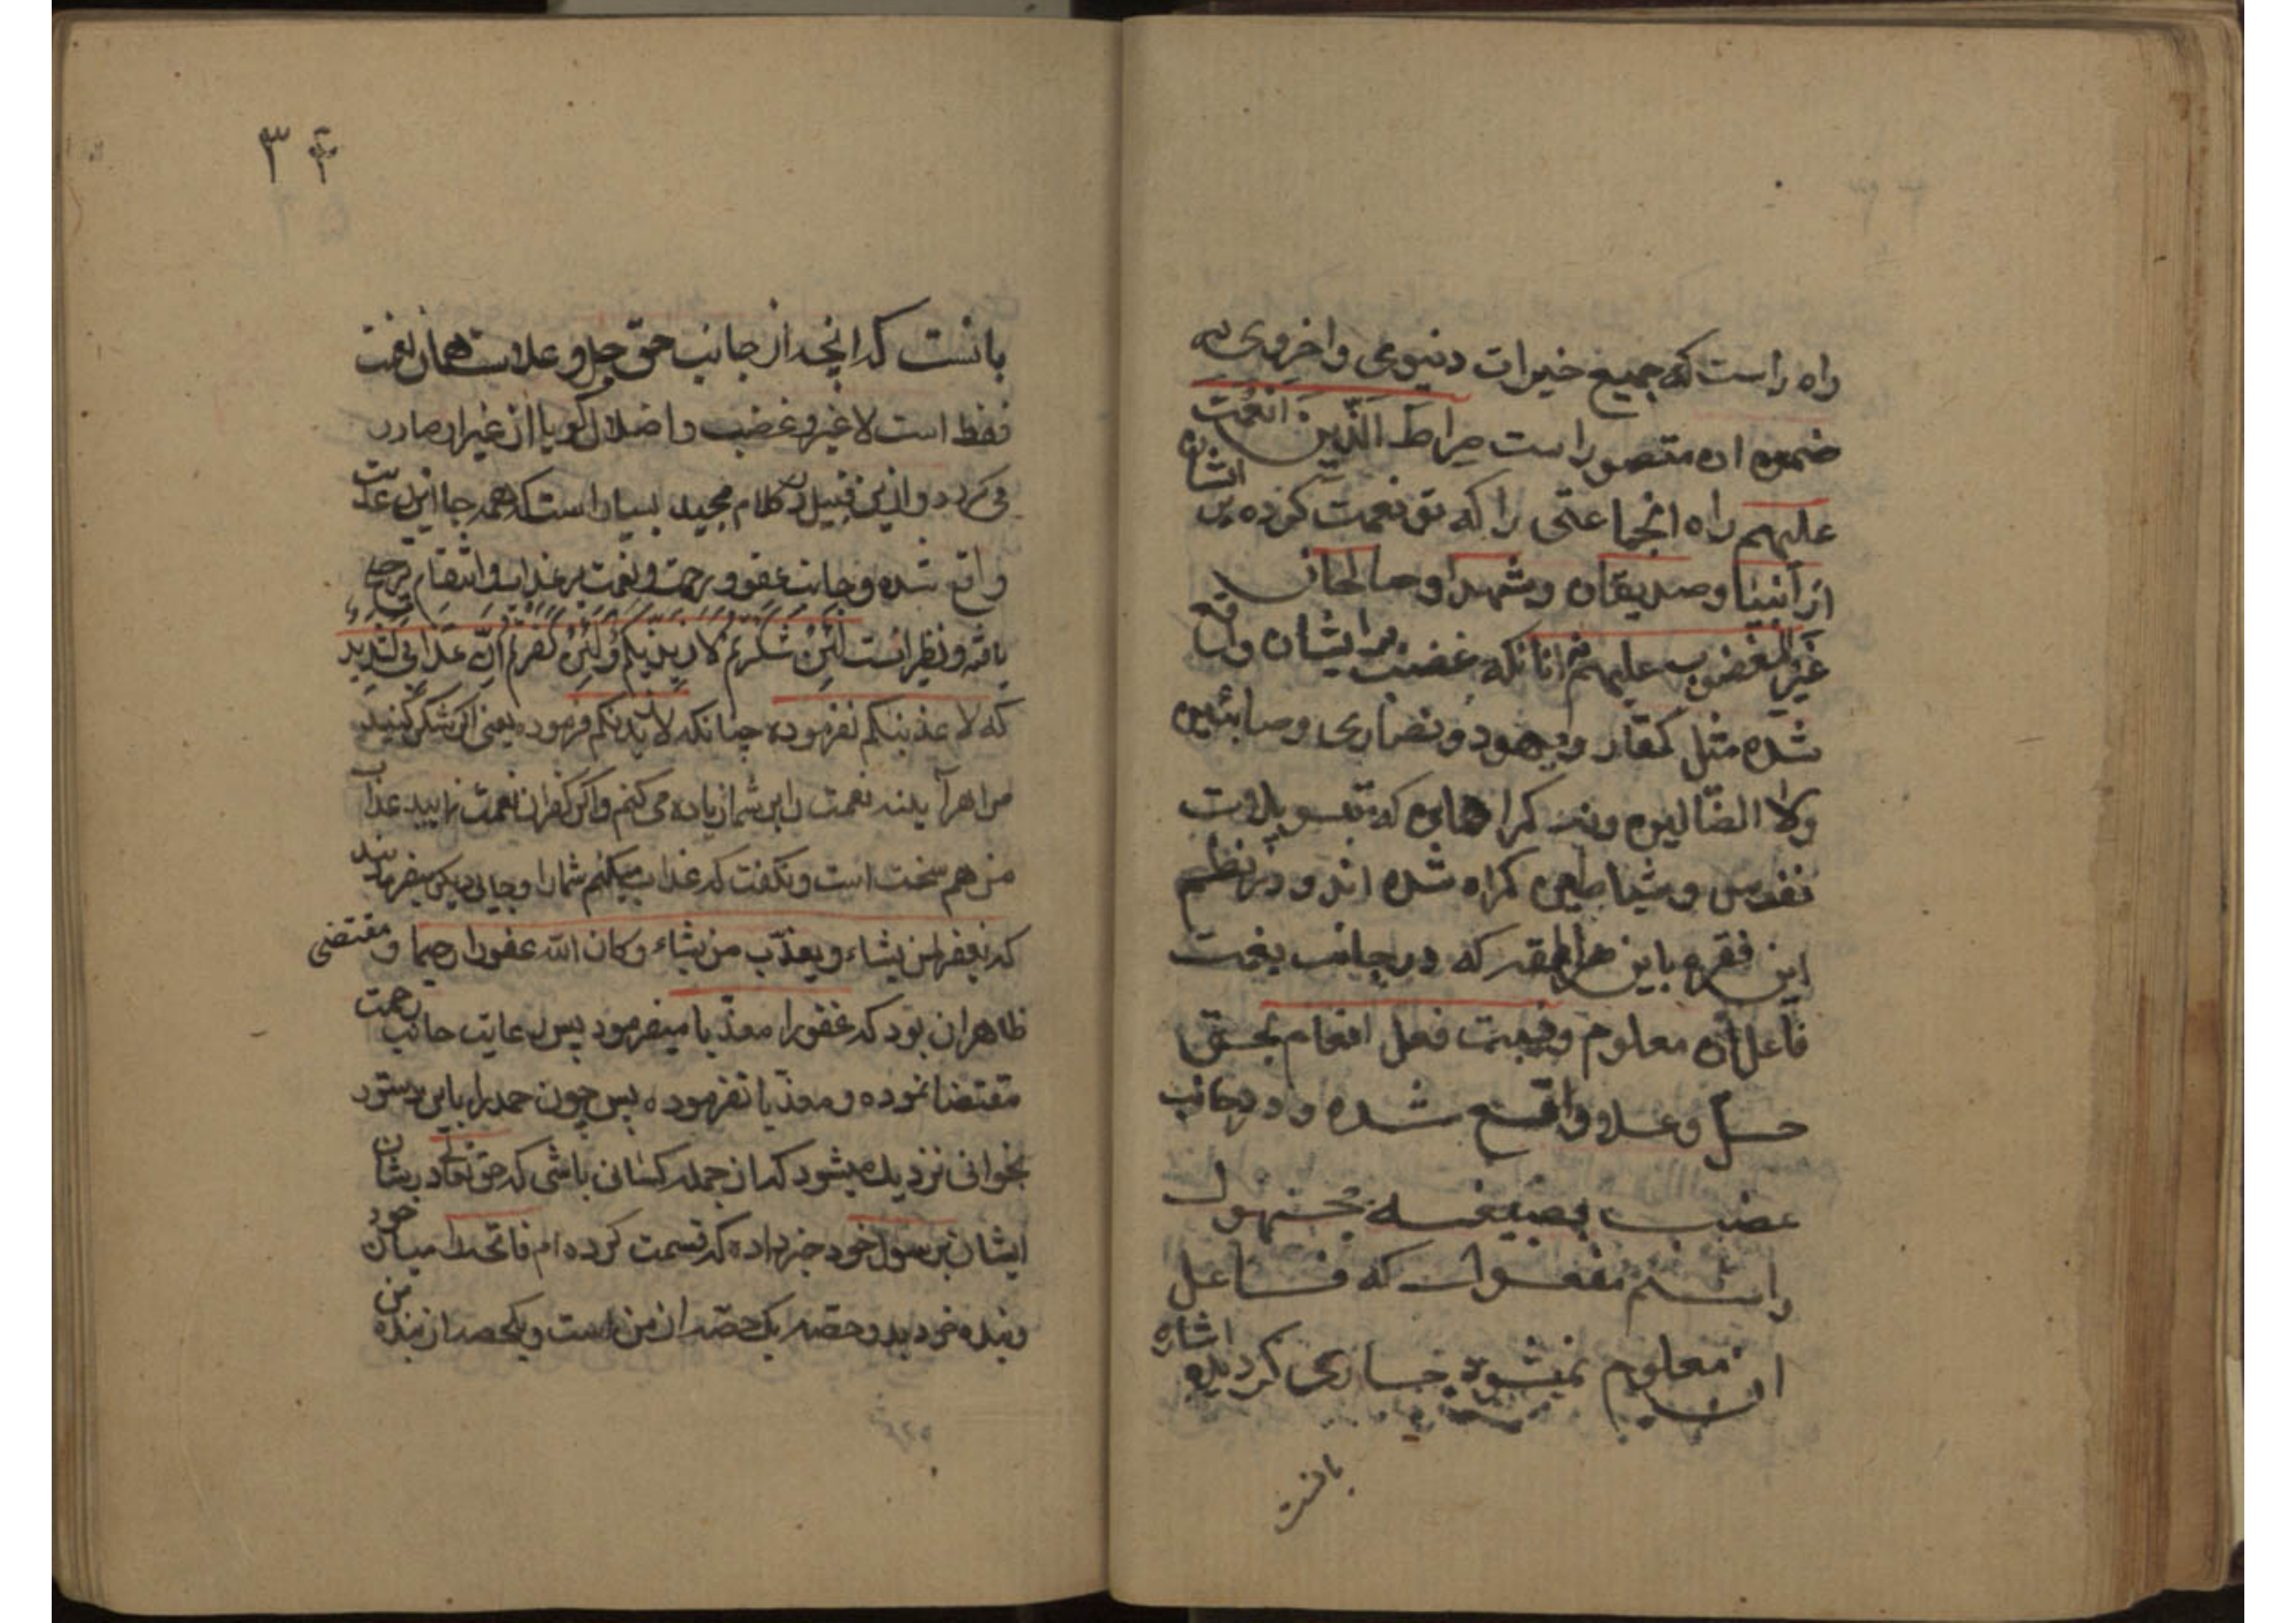 راه راست که جمیع خیرات دنیوی و اخروی به
ضمن ان متصور است صِراطَ الَّذینَ اَنْعَمْتَ
علیهم راه انجماعتی را که تو نعمت کرده بر ایشان
از انبیا و صدیقان و شهدا و صالحان
غیر المغضوب علیهم نه انانکه غضب بر ایشان واقع
شده مثل کفّار و یهود و نصاری و صابئین
ولا الضّالین ونه کمراهان که بتسویلات
نفوس و شیاطین کمراه شده اند و در نظم
این فقره باین طریقه که در جانب نعمت
فاعل ان معلوم و نسبت فعل انعام بحق
جلّ و علا واقع شده و در جانب
غضب بصیغه مجهول
را مفعول که فاعل
ان معلوم نمیشود جاری کردیده اشاره
بانست
۳۴
بانست که انچه از جانب حقّ جل و علاست همان نعمت
فقط است لاغیر و غضب و اضلال کویا از غیر او صادر
می کردد و ازین قبیل در کلام مجید بسیار است که همه جا این رعایت
واقع شده و جانب عفو و رحمت و نعمت بر عذاب و انتقام ترجیح
یافته و نظیر انست لَئِنْ شَکَرْتُمْ لَاَزیدَنَّکُمْ وَلَئِنْ کَفَرْتُمْ اِنَّ عَذابی لَشَدیدٌ
که لاعذبنکم نفرموده چنانکه لازیدنکم فرموده یعنی اکر شکر کنید
مرا هر آینه نعمت را بر شما زیاده می کنم و اکر کفران نعمت نمایید عذاب
من هم سخت است و نکفت که عذاب میکنم شما را و جایی دیکر میفرماید
که یغفر لمن یشاء و یعذّب من یشاء و کان الله غفورا رحیما و مقتضی
ظاهر ان بود که غفورا معذّبا میفرمود پس رعایت جانب رحمت
مقتضا نموده و معذّبا نفرموده پس چون حمد را باین دستور
بخوانی نزدیک میشود که از جمله کسانی باشی که حق تعالی در شان
ایشان بر رسول خود خبر داده که قسمت کرده ام فاتحه را میان خود
و بنده خود بدو حصه یک حصّه از من است و یکحصه از بنده من